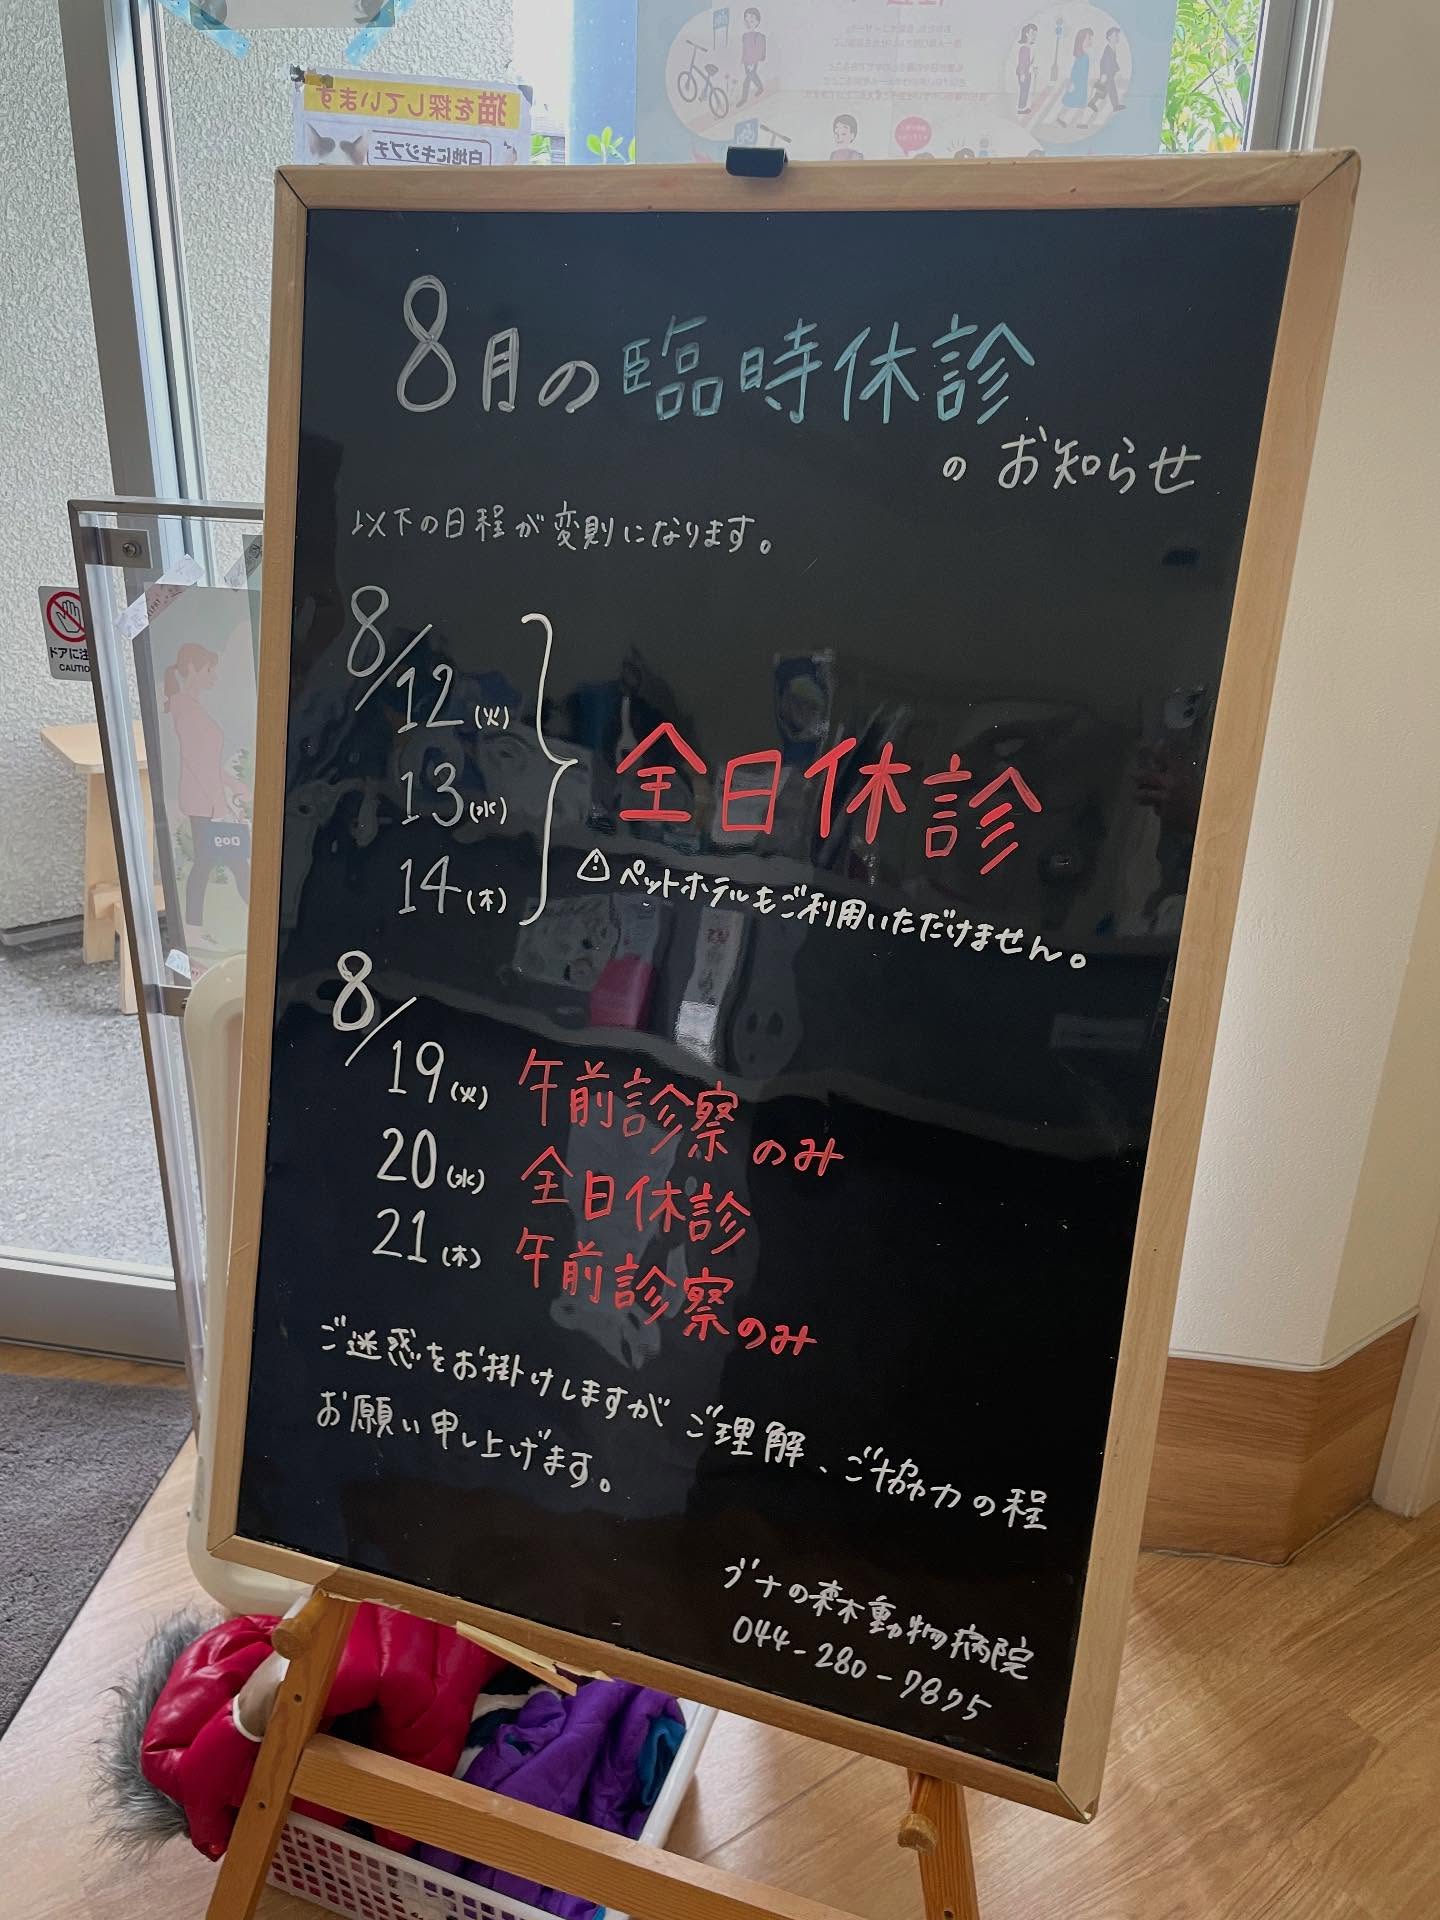 猫を探しています
白地にキジブチ
8月の臨時休診
のお知らせ
以下の日程が変則になります。
8/12(火)
13(水)
14(木)
全日休診
⚠ペットホテルもご利用いただけません。
8/19(火) 午前診察のみ
20(水) 全日休診
21(木) 午前診察のみ
ご迷惑をお掛けしますが ご理解、ご協力の程
お願い申し上げます。
ブナの森動物病院
044-280-7875
ドアに注
CAUTIO
Dog